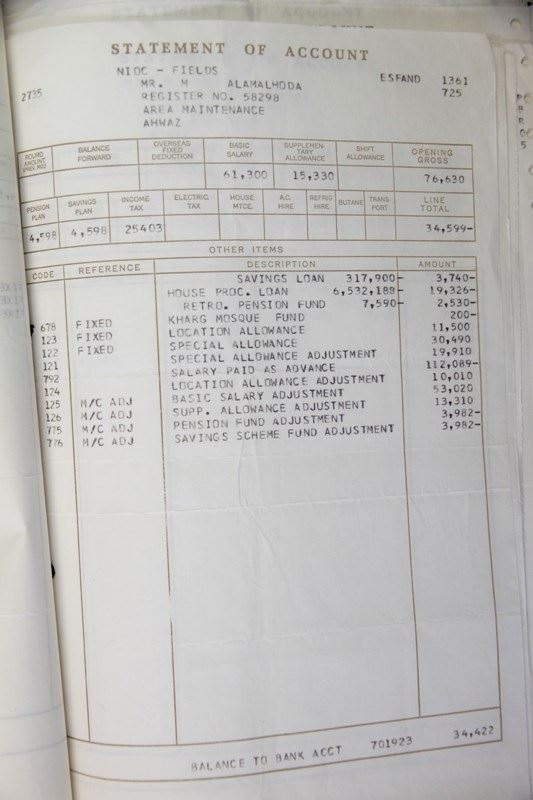 STATEMENT OF ACCOUNT
NIOC - FIELDS
MR. M ALAMALHODA ESFAND 1361
2735 REGISTER NO. 58298 725
AREA MAINTENANCE
AHWAZ
ROUND AMOUNT (PREV. MO.) BALANCE FORWARD OVERSEAS FIXED DEDUCTION BASIC SALARY SUPPLEMEN-TARY ALLOWANCE SHIFT ALLOWANCE OPENING GROSS
61,300 15,330 76,630
PENSION PLAN SAVINGS PLAN INCOME TAX ELECTRIC. TAX HOUSE MTCE. A.C. HIRE REFRIG HIRE BUTANE TRANS-PORT LINE TOTAL
4,598 4,598 25403 34,599-
OTHER ITEMS
CODE REFERENCE DESCRIPTION AMOUNT
SAVINGS LOAN 317,900- 3,740-
HOUSE PROC. LOAN 6,532,188- 19,326-
RETRO. PENSION FUND 7,590- 2,530-
678 FIXED KHARG MOSQUE FUND 200-
123 FIXED LOCATION ALLOWANCE 11,500
122 FIXED SPECIAL ALLOWANCE 30,490
121 SPECIAL ALLOWANCE ADJUSTMENT 19,910
792 SALARY PAID AS ADVANCE 112,089-
124 LOCATION ALLOWANCE ADJUSTMENT 10,010
125 M/C ADJ BASIC SALARY ADJUSTMENT 53,020
126 M/C ADJ SUPP. ALLOWANCE ADJUSTMENT 13,310
775 M/C ADJ PENSION FUND ADJUSTMENT 3,982-
776 M/C ADJ SAVINGS SCHEME FUND ADJUSTMENT 3,982-
BALANCE TO BANK ACCT 701923 34,422